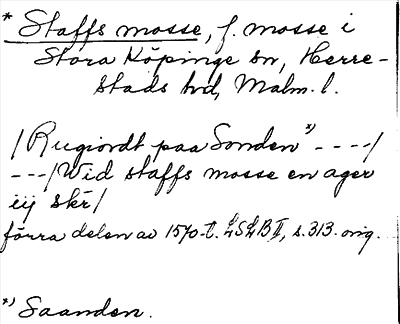 * Staffs mosse, f. mosse i
Stora Köpinge sn, Herre-
stads hd, Malm. l.
/Rugiordt paa Sonden x) ----/
---/Wid staffs mosse en ager
iij skr/
förra delen av 1570-t. LSLB II, s. 313. orig.
x) Saanden.